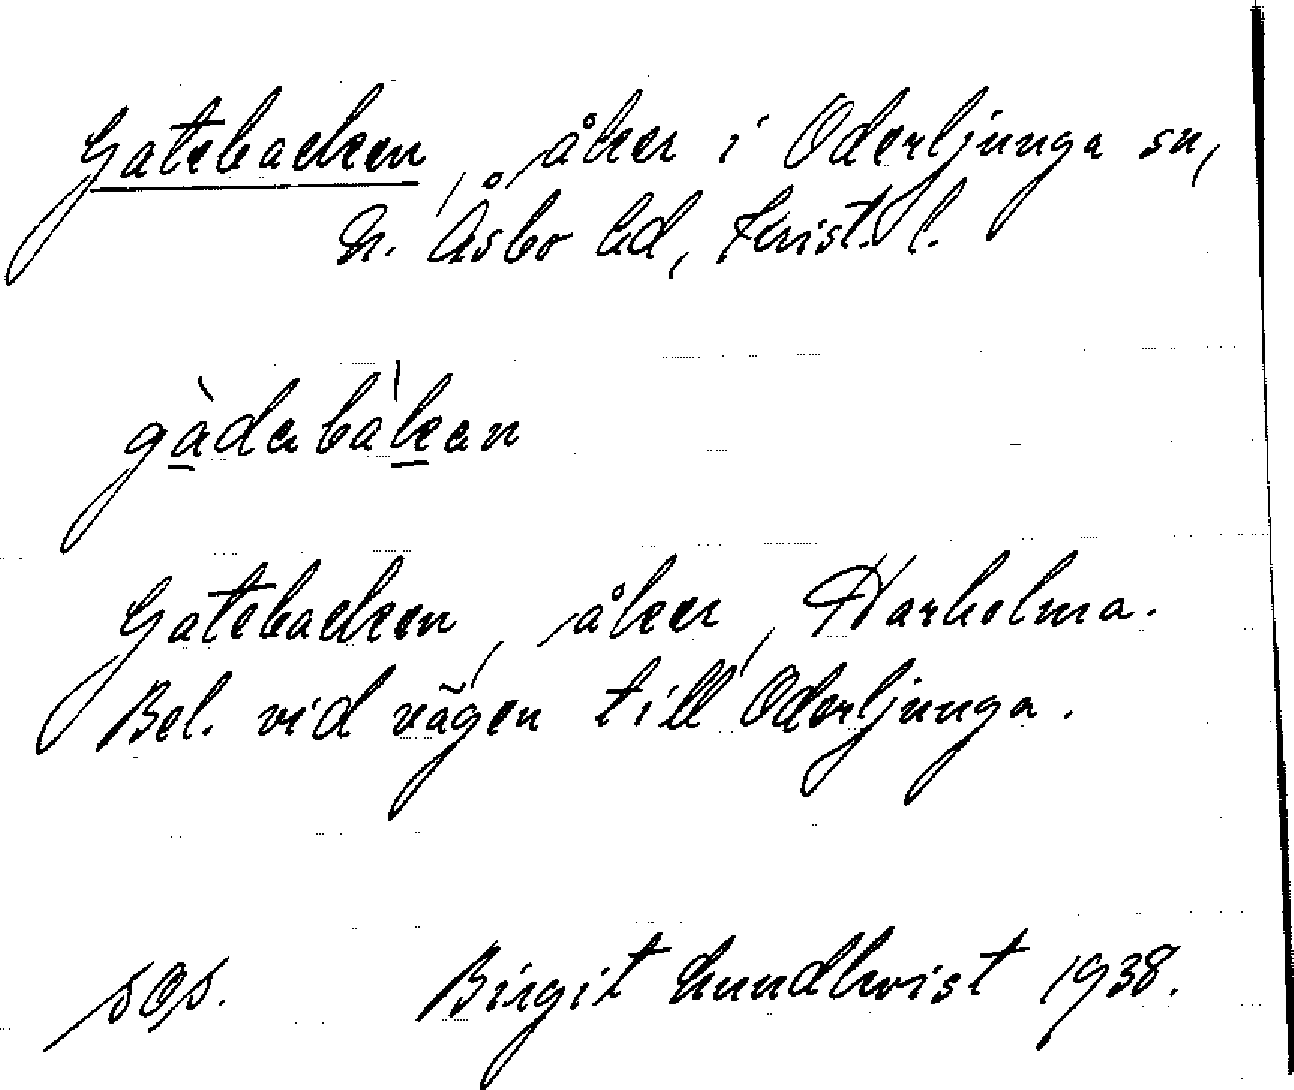 Gatebacken, åker i Oderljunga sn,
N. Åsbo hd, Krist. l.
gàdabàkan
Gatebacken, åker, Harholma.
Bel. vid vägen till Oderljunga.
Birgit Lundkvist 1938.